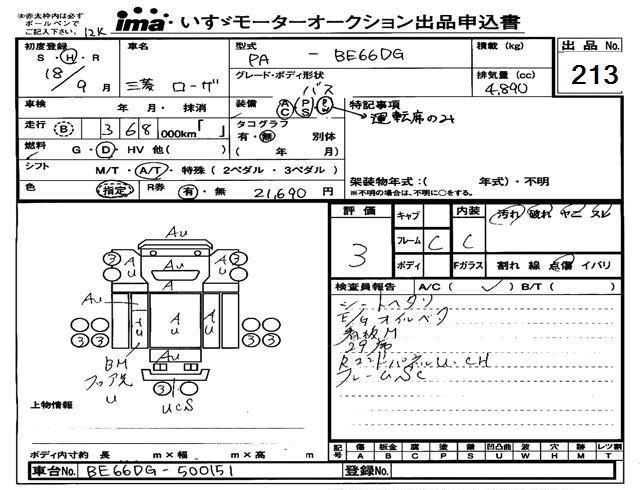 ※赤太枠内は必ず
ボールペンで
ご記入下さい。
12K
ima いすゞモーターオークション出品申込書
初度登録
S・H・R
18/9月
車名
三菱 ローザ
型式
PA - BE66DG
グレード・ボディ形状
バス
積載 (kg)
排気量 (cc)
4,890
出品No.
213
車検 年 月・抹消
装備 AC PS PW
特記事項
→運転席のみ
走行 B 368,000km「 」
タコグラフ
有・無 別体
( 年 月)
燃料 G・D・HV 他( )
シフト M/T・A/T・特殊(2ペダル・3ペダル)
架装物年式:( 年式)・不明
※不明の場合は、不明に○をする。
色 指定
R券 有・無 21,690 円
評価
3
キャブ
フレーム C
ボディ
内装 C
Fガラス
汚れ 破れ ヤニ スレ
割れ 線 点傷 イバリ
検査員報告 A/C( ✓ ) B/T( )
シートヘタリ
E/G オイルベタ
看板M
29席
Rエンドパネル U.CH
フレームSC
Au
A
U
A
U
Au
A
3
3
3
3
Au
A
U
A
U
A
U
A
U
3
3
Au
BM
フロア洗
U
3
UCS
上物情報
ボディ内寸約 長 m×幅 m×高 m
記号 傷 板金 腐 塗 錆 凹凸曲 波 穴 M T レツ割
A B C P S U W H M T
車台No. BE66DG-500151
登録No.